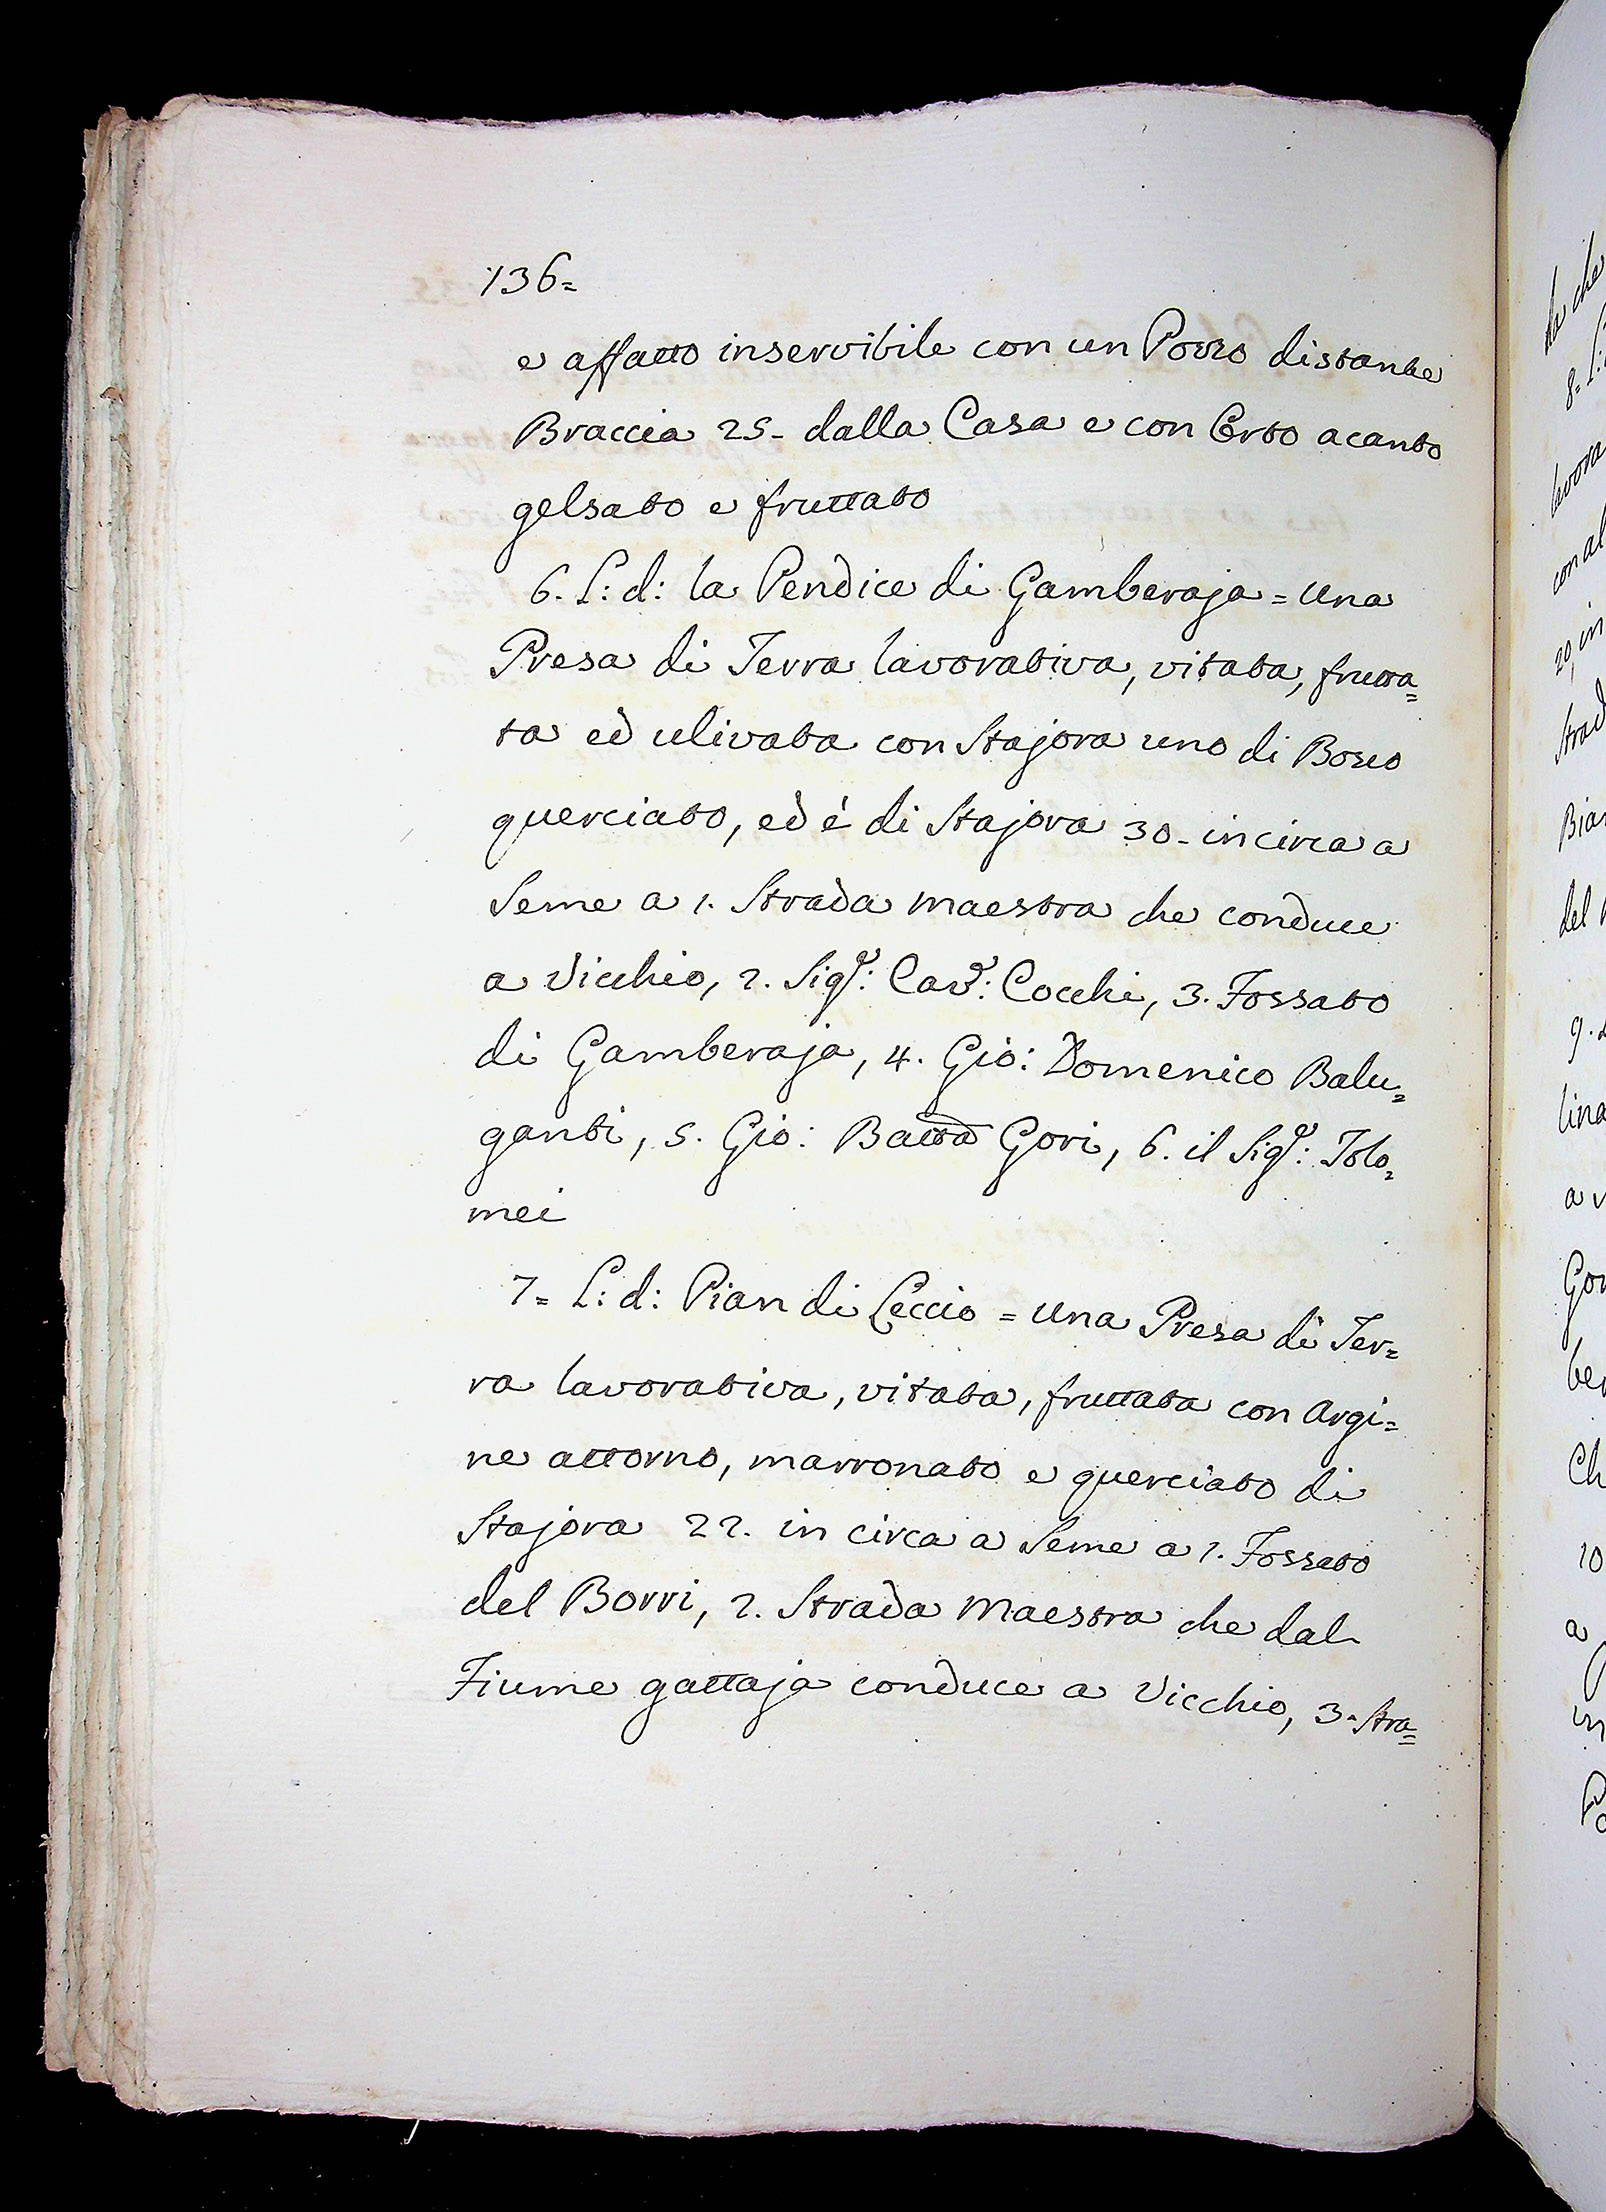 136=
e affatto inservibile con un Pozzo distante
Braccia 25- dalla Casa e con Orto acanto
gelsato e fruttato
6. L: d: la Pendice di Gamberaja = una
Presa di Terra lavorativa, vitata, frutta=
ta ed ulivata con Stajora uno di Bosco
querciato, ed è di Stajora 30- in circa a
Seme a 1. Strada maestra che conduce
a Vicchio, 2. Sigr: Cavr: Cocchi, 3. Fossato
di Gamberaja, 4. Gio: Domenico Balu=
ganti, 5. Gio: Batta Gori, 6. il Sigr: Tolo=
mei
7= L: d: Pian di Leccio = una Presa di Ter=
ra lavorativa, vitata, fruttata con Argi=
ne attorno, marronato e querciato di
Stajora 22. in circa a Seme a 1. Fossato
del Borri, 2. Strada Maestra che dal
Fiume gattaja conduce a Vicchio, 3- Stra=
da che
8= L:
lavora
con al
20, in
Strad
Bia
del
9.
lina
a v
Gor
ber
Ch
10
a
in